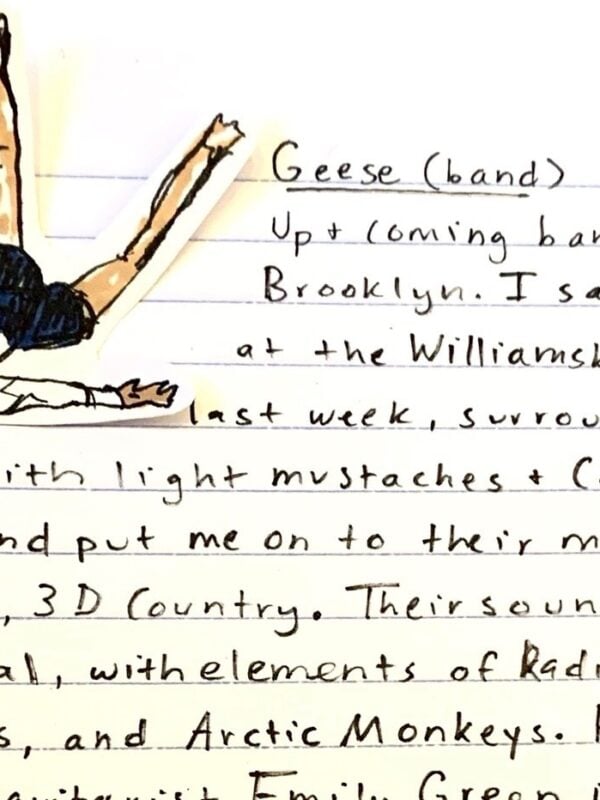 Geese (band)
Up + coming ban
Brooklyn. I sa
at the Williamsb
last week, surrou
ith light mustaches + C
nd put me on to their m
, 3D Country. Their soun
al, with elements of Radi
s, and Arctic Monkeys.
Emily Green